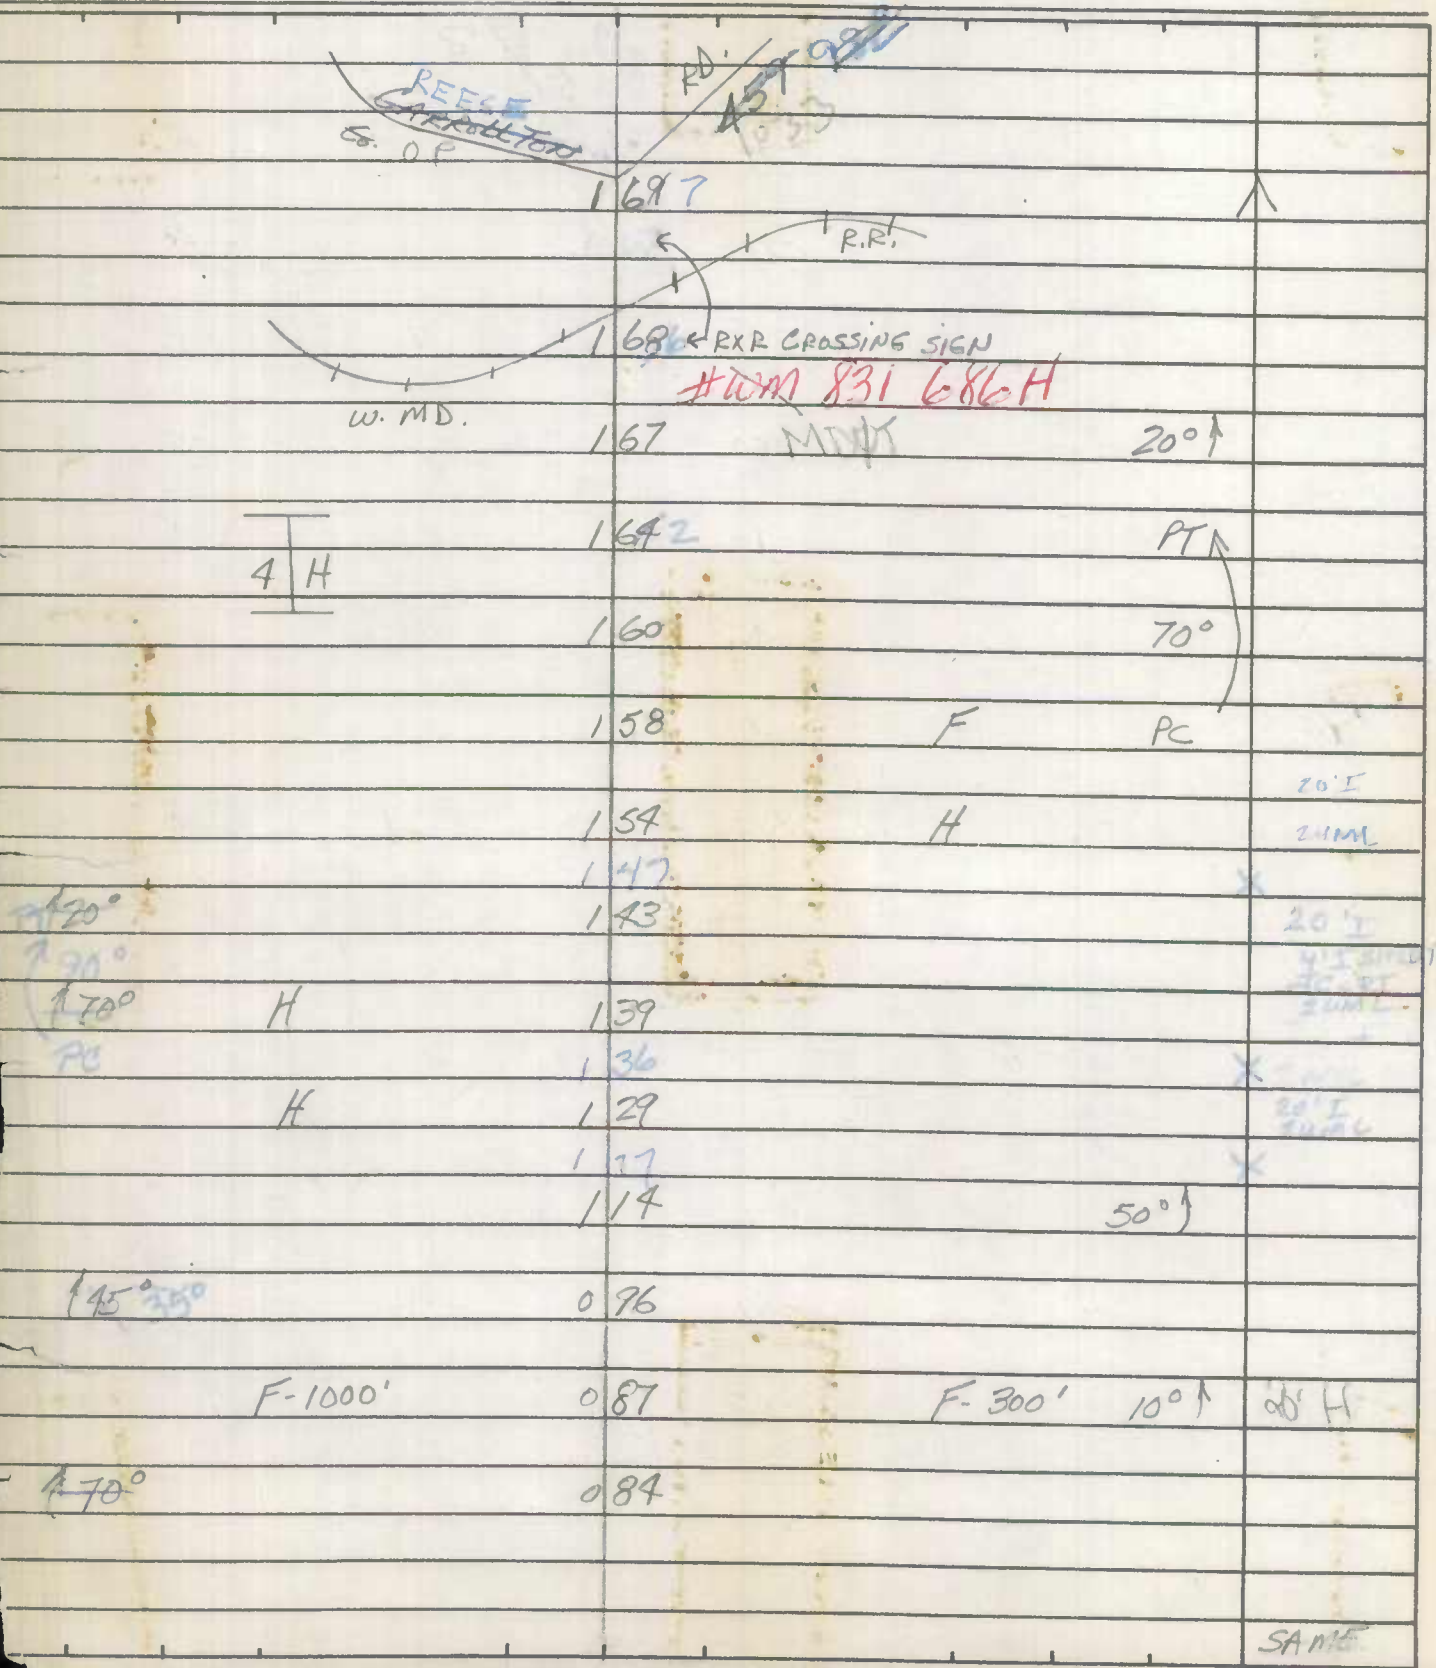 REESE RD. 459
CARROLLTON
Co. OP
1 69 7
R.R.
1 68 ← RXR CROSSING SIGN
#WM 831 686H
W. MD.
1 67 20°↑
1 64 2 PT
4 H
1 60 70°
1 58 F PC
20' I
1 54 H 24ML
1 47 X
↑20° 1 43 20' I
90°
↑70° H 1 39
PC 1 36 X
H 1 29 20' I
1 17 X
1 14 50°↑
↑45° 35° 0 96
F-1000' 0 87 F-300' 10°↑ 20' H
↑70° 0 84
SAME